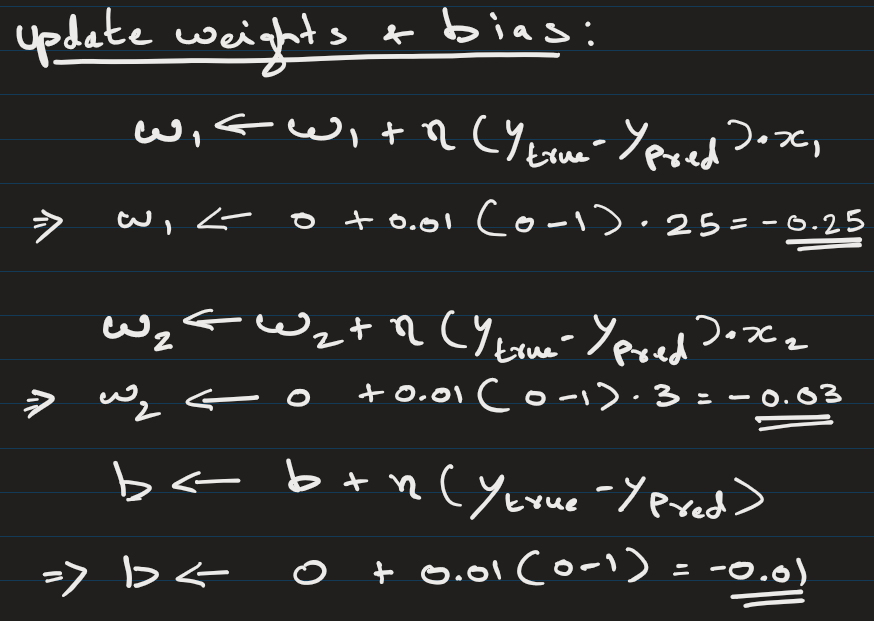 update weights & bias:
w₁ ← w₁ + η (y_true - y_pred) · x₁
⇒ w₁ ← 0 + 0.01 (0 - 1) · 25 = -0.25
w₂ ← w₂ + η (y_true - y_pred) · x₂
⇒ w₂ ← 0 + 0.01 (0 - 1) · 3 = -0.03
b ← b + η (y_true - y_pred)
⇒ b ← 0 + 0.01 (0 - 1) = -0.01